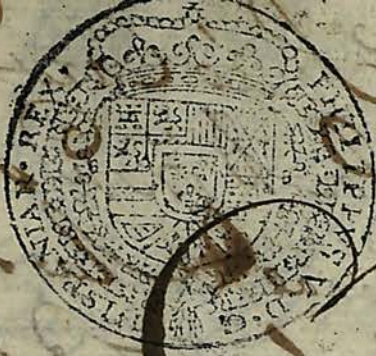 PHILIPPUS V. D. G.
HISPANIAR. REX.